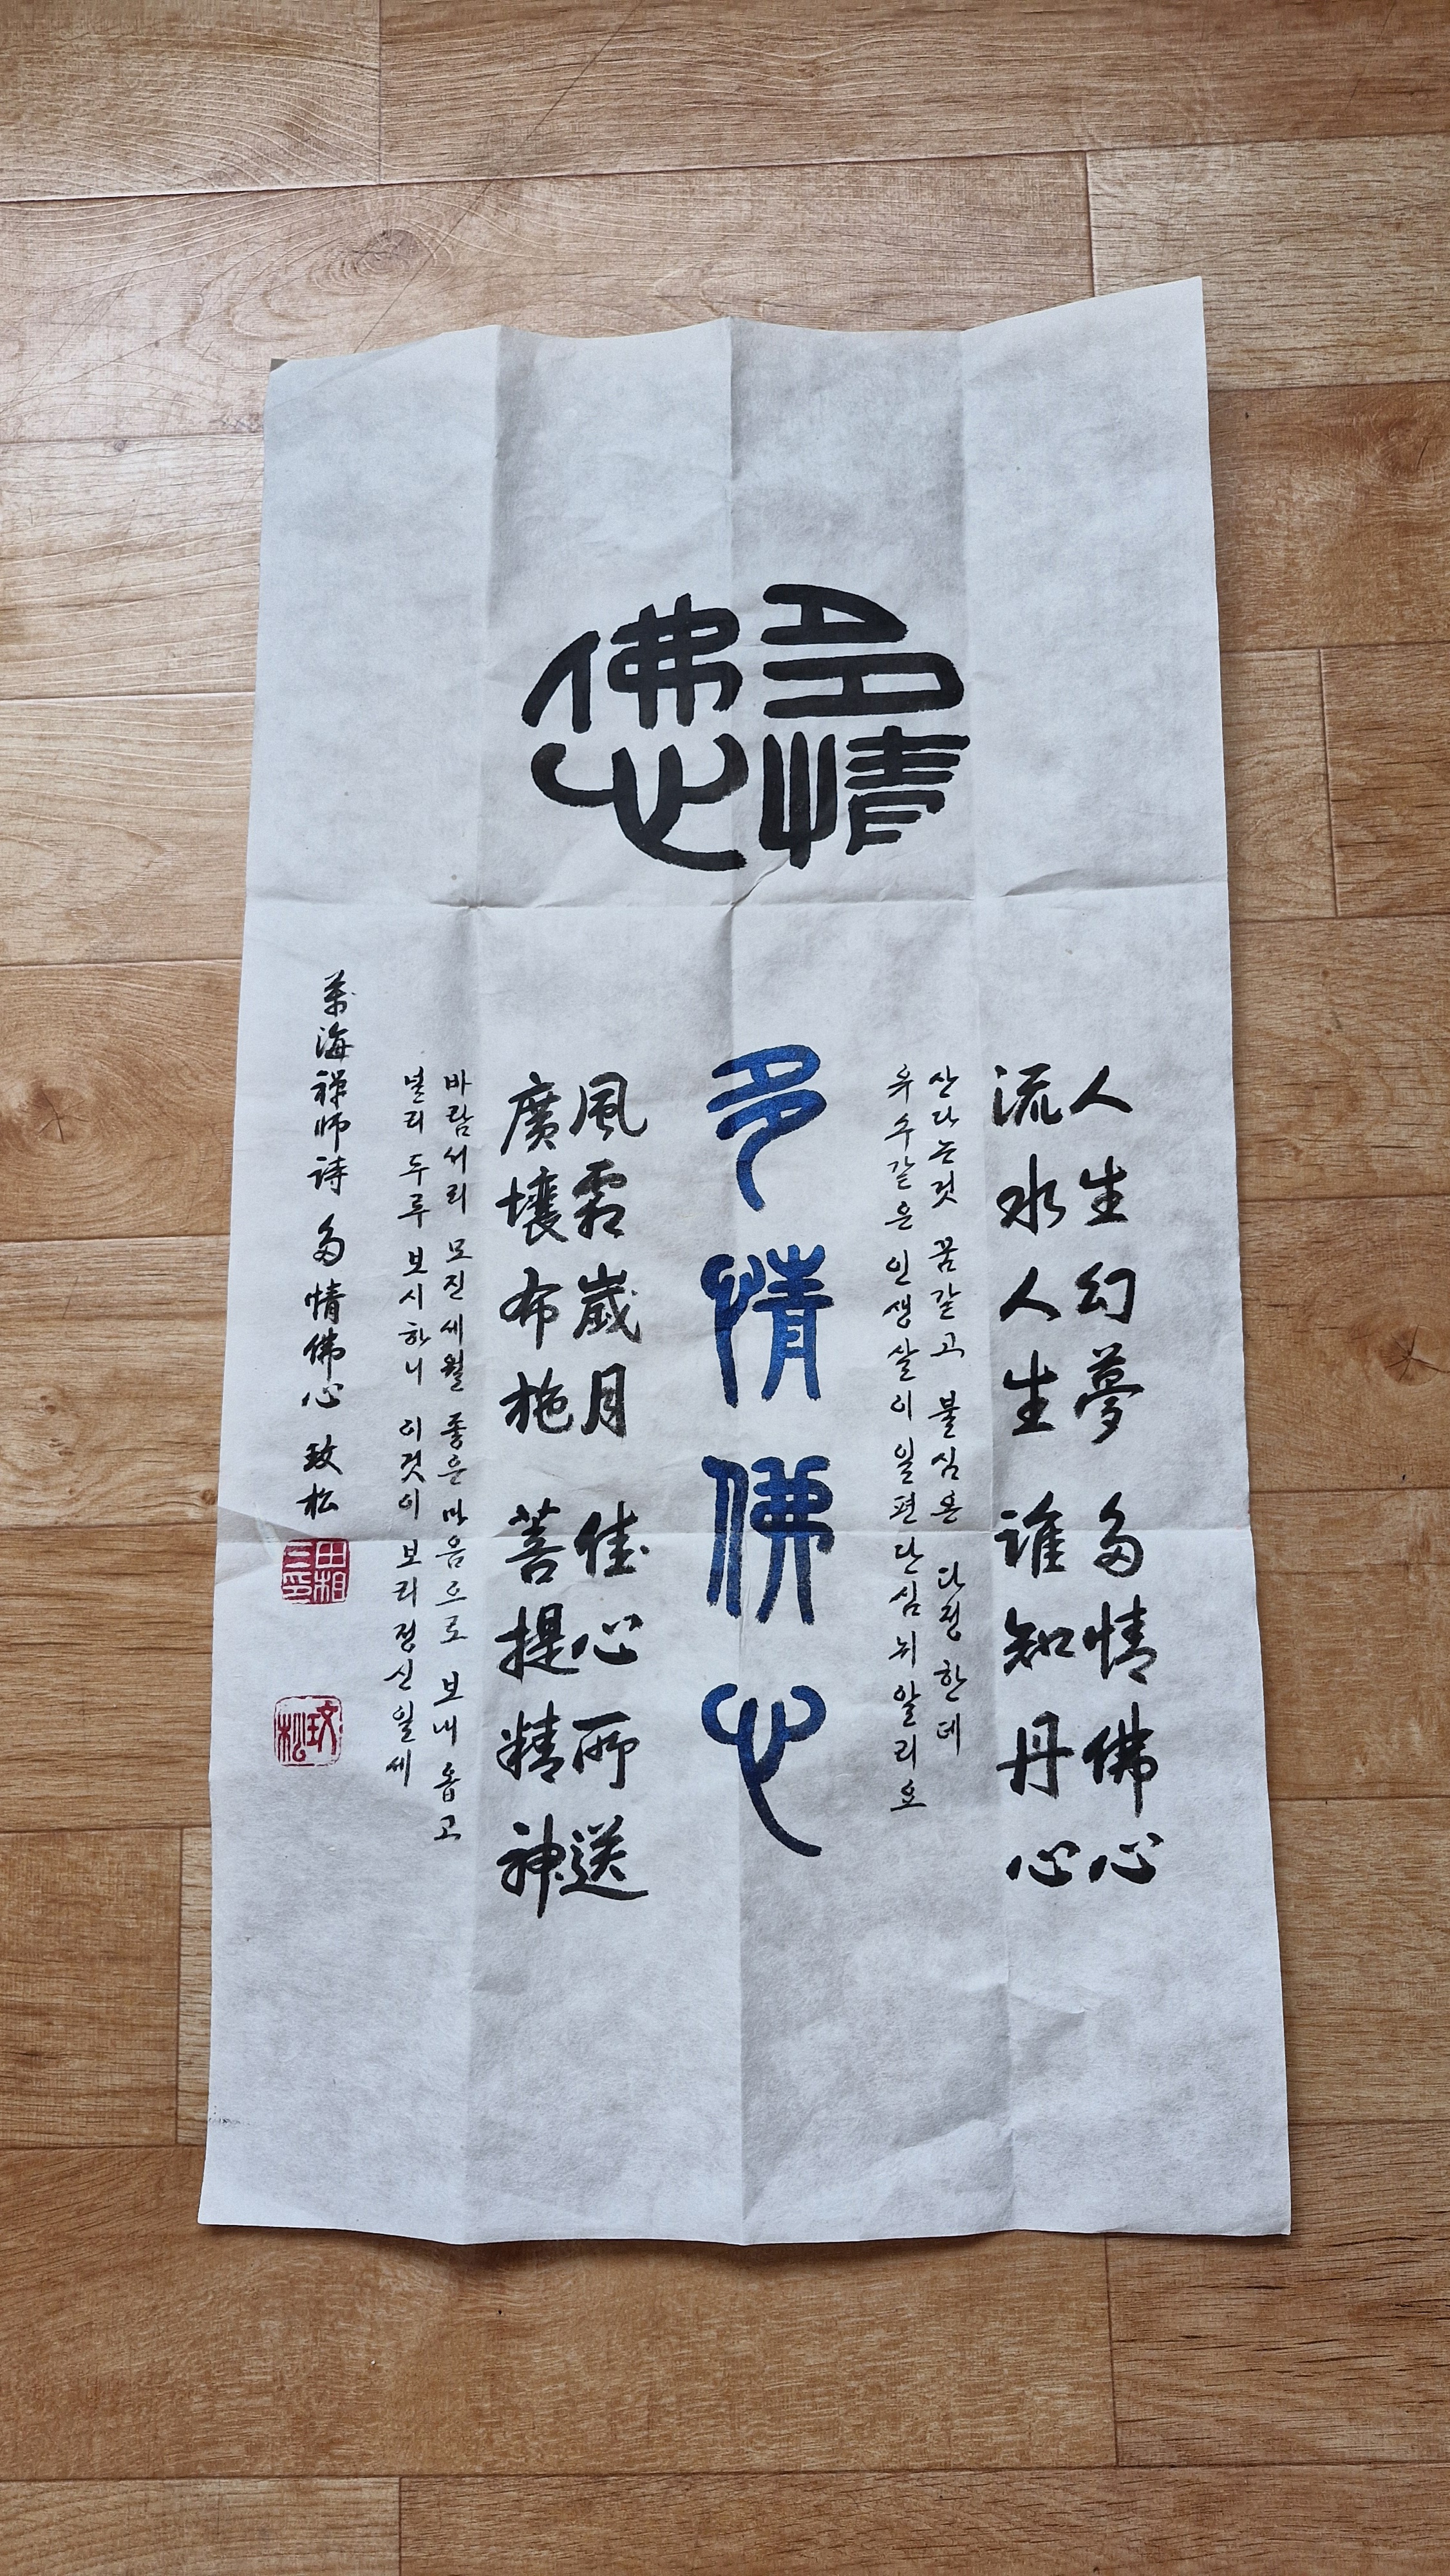 多情
佛心
人生幻夢 多情佛心
流水人生 誰知丹心
산다는것 꿈같고 불심은 다정한데
유수같은 인생살이 일편단심 뉘알리요
多情佛心
風霜歲月 佳心所送
廣壤布施 菩提精神
바람서리 모진세월 좋은마음으로 보내옵고
널리두루 보시하니 이것이 보리정신일세
萬海禪师詩 多情佛心 玟松
玟松